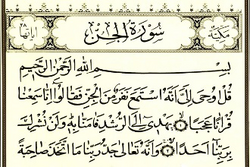 سُورَةُ الجِنِّ
مكية
آياتها ٢٨
بِسْمِ اللَّهِ الرَّحْمَٰنِ الرَّحِيمِ
قُلْ أُوحِيَ إِلَيَّ أَنَّهُ اسْتَمَعَ نَفَرٌ مِنَ الْجِنِّ فَقَالُوا إِنَّا سَمِعْنَا
قُرْآنًا عَجَبًا ۝ يَهْدِي إِلَى الرُّشْدِ فَآمَنَّا بِهِ وَلَنْ نُشْرِكَ
بِرَبِّنَا أَحَدًا ۝ وَأَنَّهُ تَعَالَى جَدُّ رَبِّنَا مَا اتَّخَذَ صَاحِبَةً